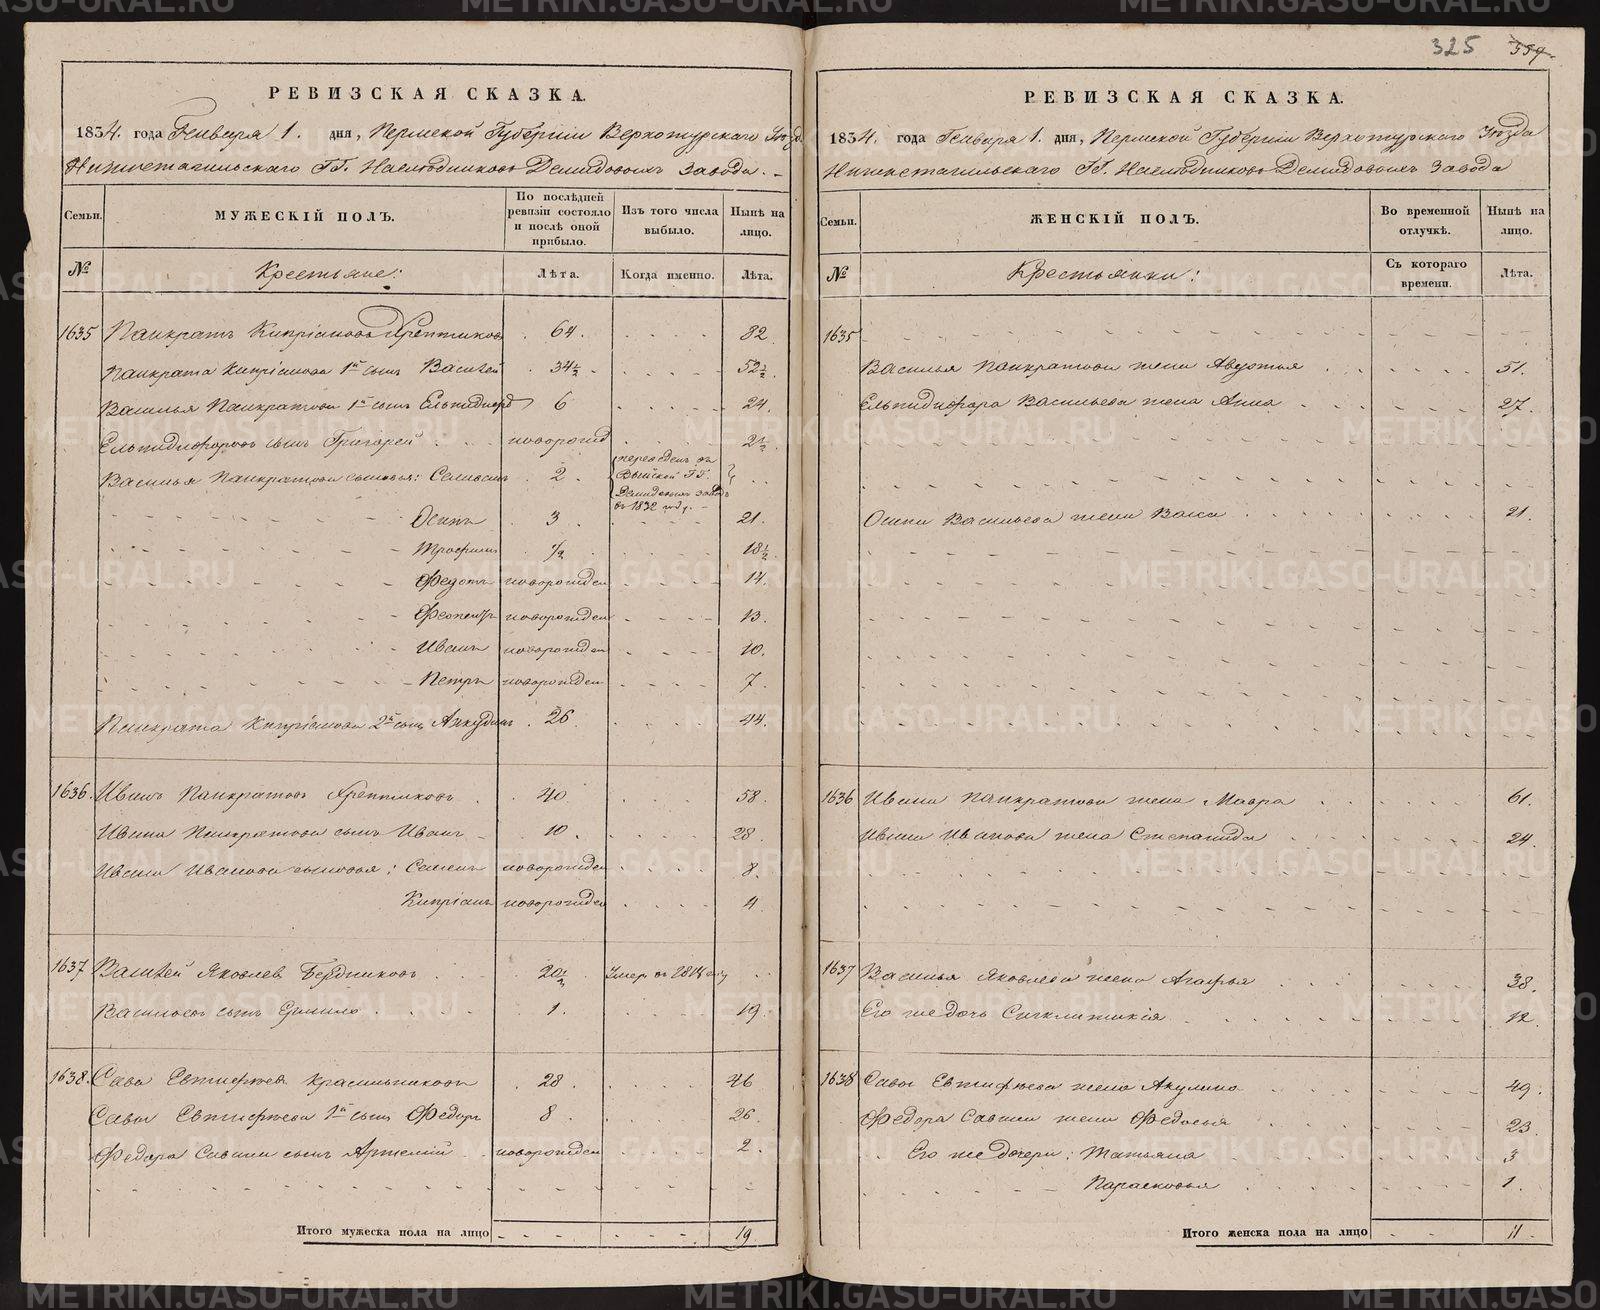 325 359
РЕВИЗСКАЯ СКАЗКА.
1834. года Генваря 1. дня, Пермской Губернии Верхотурскаго Уезд.
Нижнетагильскаго ГГ. Наследниковъ Демидовыхъ завода.
Семьи. МУЖЕСКІЙ ПОЛЪ. По послѣдней ревизіи состояло и послѣ оной прибыло. Изъ того числа выбыло. Нынѣ на лицо.
№ Крестьяне: Лѣта. Когда именно. Лѣта.
1635 Панкратъ Кипріановъ 64. 82.
Панкрата Кипріанова 1й сынъ Василей 34½ 52½
Василья Панкратова 1й сынъ Ельпидифоръ 6 24.
Ельпидифоровъ сынъ Григорей новорожд 2½
Василья Панкратова сыновья: Селиванъ 2. переведенъ въ Выйской ГГ. Демидовыхъ заводъ въ 1832 году.
Осипъ 3. 21.
Трофимъ ½ 18½
Федотъ новорожден 14.
новорожден 13.
Иванъ новорожден 10.
Петръ новорожден 7.
Панкрата Кипріанова 2й сынъ Анкудинъ 26. 44.
1636. Иванъ Панкратовъ 40 58.
Ивана Панкратова сынъ Иванъ 10. 28.
Ивана Иванова сыновья: Семенъ новорожден 8.
Кипріанъ новорожден 4.
1637 Василей Яковлев Бердниковъ 20½ Умеръ въ 1818 году
Васильевъ сынъ Данило 1. 19.
1638. Сава Евтифеев Красильниковъ 28. 46
Савы Евтифеева 1й сынъ Федоръ 8. 26.
Федора Савина сынъ Артемій новорожден 2.
Итого мужеска пола на лицо 19
РЕВИЗСКАЯ СКАЗКА.
1834. года Генваря 1. дня, Пермской Губернии Верхотурскаго Уезда
Нижнетагильскаго ГГ. Наследниковъ Демидовыхъ завода
Семьи. ЖЕНСКІЙ ПОЛЪ. Во временной отлучкѣ. Нынѣ на лицо.
№ Крестьянки: Съ котораго времени. Лѣта.
1635
Василья Панкратова жена Авдотья 51.
Ельпидифора Васильева жена Анна 27.
Осипа Васильева жена Васса 21.
1636 Ивана Панкратова жена Мавра 61.
Ивана Иванова жена Степанида 24.
1637 Василья Яковлева жена Агафья 38.
Его же дочь Синклитикія 12.
1638 Савы Евтифеева жена Акулина 49.
Федора Савина жена Федосья 23.
Его же дочери: Татьяна 3
Парасковья 1.
Итого женска пола на лицо 11.
METRIKI.GASO-URAL.RU